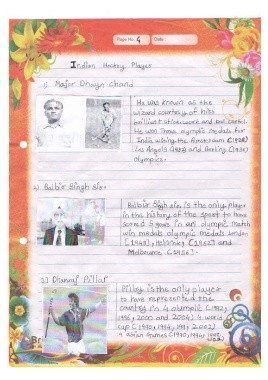 Page No. 4 Date
Indian Hockey Player
1) Major Dhayn Chand
He was known as the
wizard courtesy of his
brilliant stick work and ball control
He won Three olympic medals for
India wining the Amsterdam (1928)
Los Angels (1932) and Berling (1936)
olympics.
2) Balbir Singh Sinr
Balbir Singh sin is the only player
in the history of the sport to have
scored 5 goals in an olympic match
win medals olympic medals London
[1948], Helsinki [1952] and
Melbourne [1956].
3) Dhanraj Pillar
Pillay is the only player
to have represented the
country in 4 olympic (1992,
1996, 2000 and 2004) 4 world
cup (1990, 1994, 1998, 2002)
4 asian games (1990, 1994, 1998,
2002)